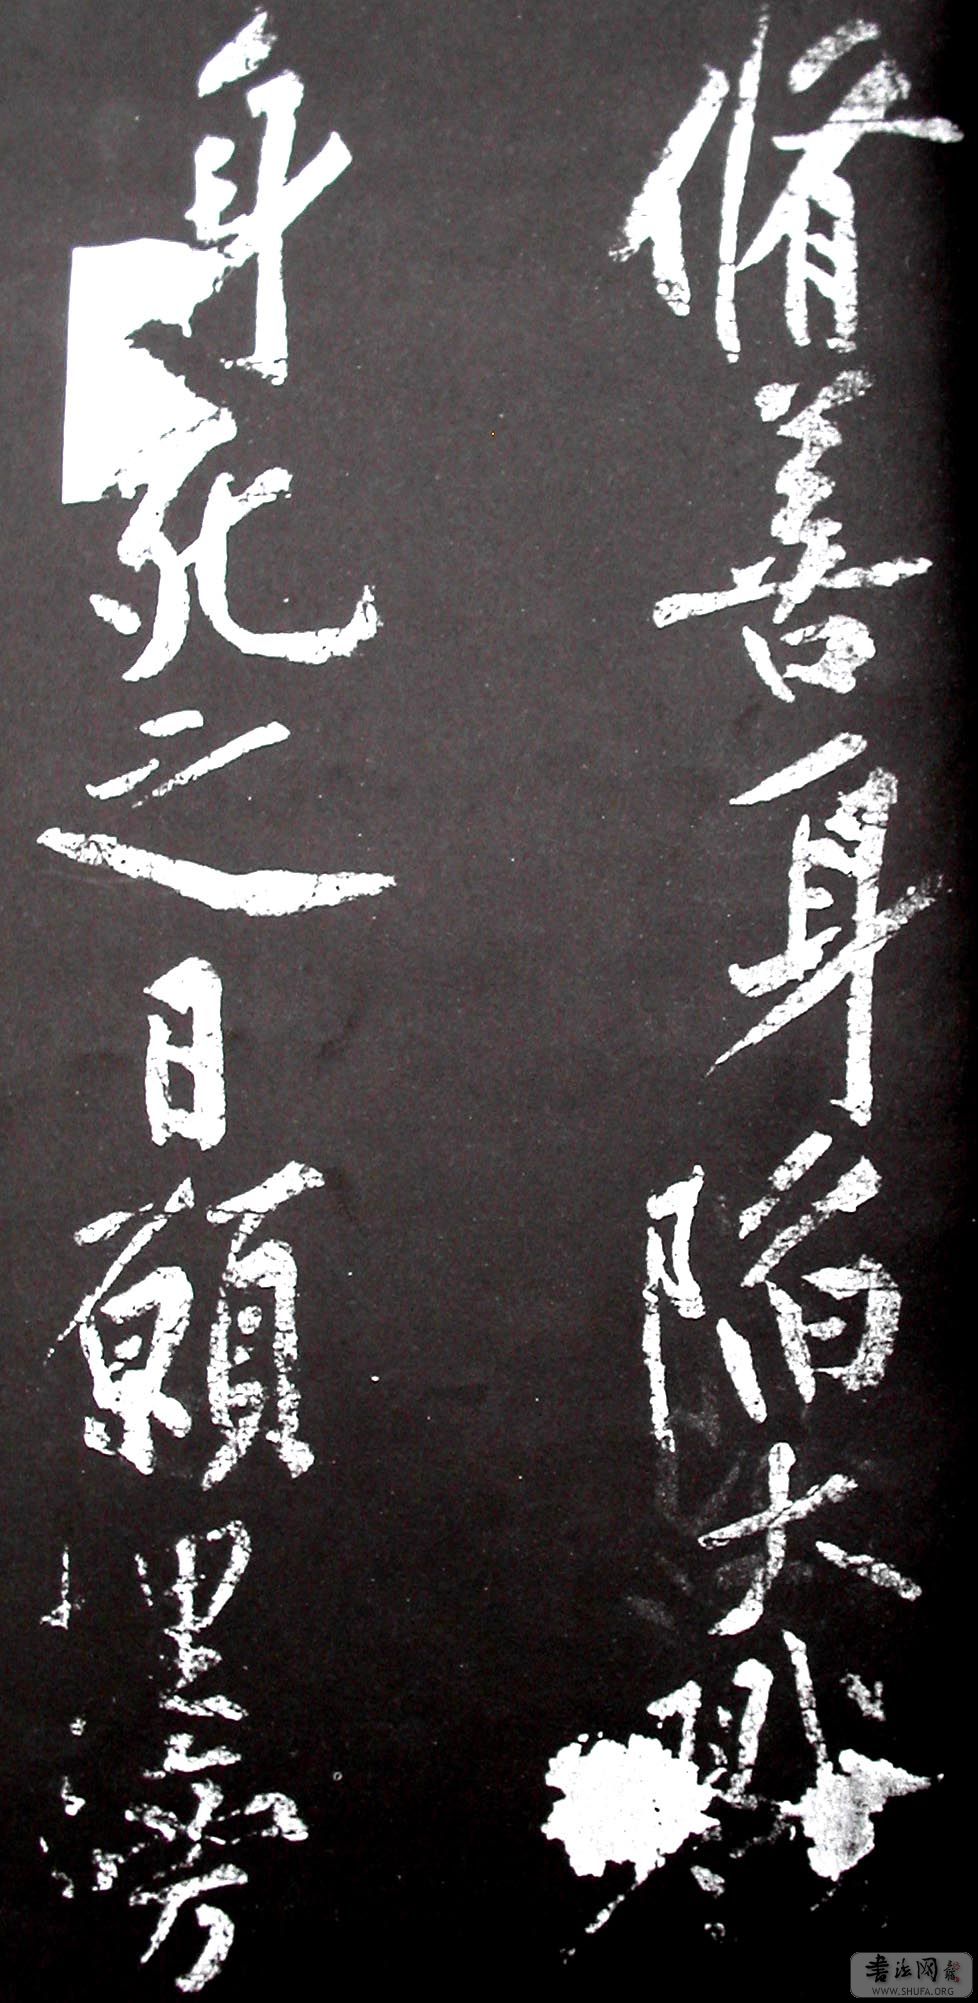 脩善身陷大戮
身死之日願埋滂
书法网
WWW.SHUFA.ORG